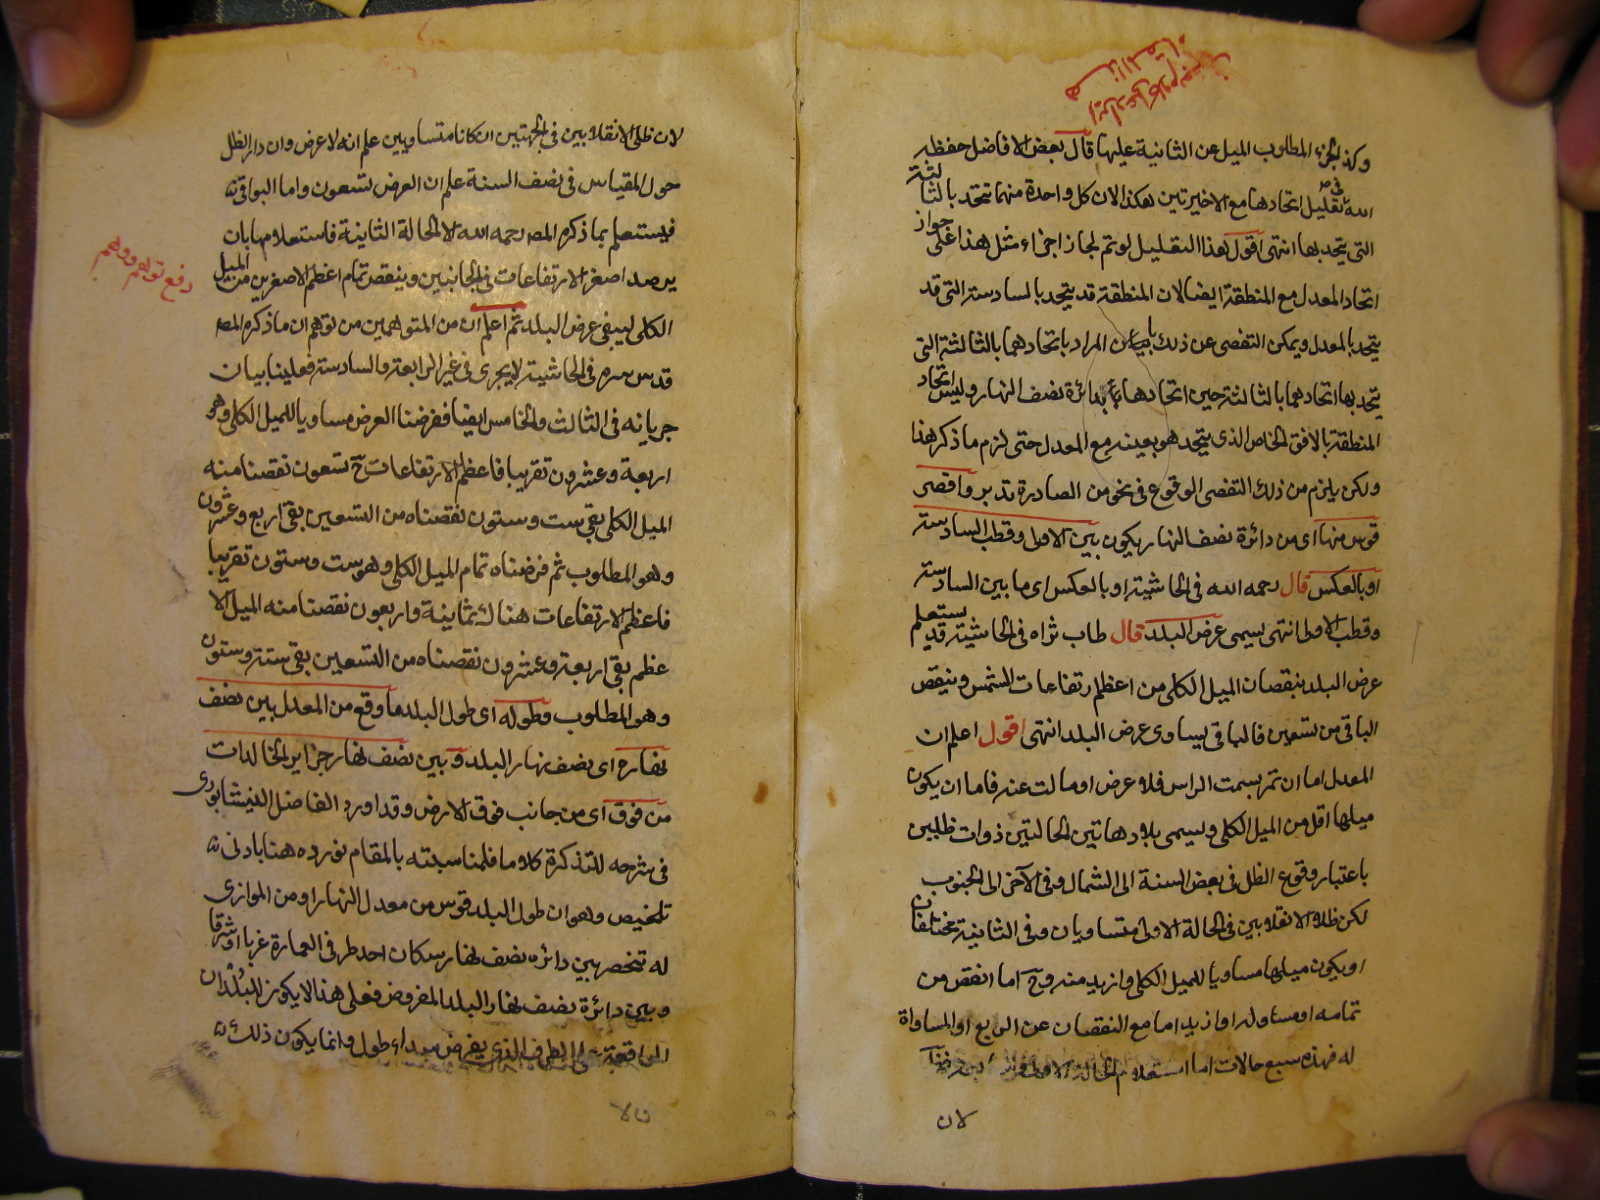 ايراد على كلام بعض
وكذا الجزء المطلوب الميل عن الثانية عليها قال بعض الافاضل حفظه
الله في تقليل اتحادها مع الاخيرتين هكذا لان كل واحدة منهما تتحد بالثالثة
التى يتحد بها انتهى اقول هذا التقليل لو تم لجاز اجراء مثل هذا على جواز
اتحاد المعدل مع المنطقة ايضا لان المنطقة قد يتحد بالسادسة التى قد
يتحد بالمعدل ويمكن التفصى عن ذلك بان المراد باتحادهما بالثالثة التى
يتحد بها اتحادهما بالثالثة حين اتحادها بدائرة نصف النهار وليس اتحاد
المنطقة بالافق الخاص الذى يتحد هو بعينه مع المعدل حتى لزم ما ذكر هذا
ولكن يلزم من ذلك التفصى الوقوع فى نحو من الصادرة تدبر واقصى
قوس منها اى من دائرة نصف النهار يكون بين الاولى وقطب السادسة
او بالعكس قال رحمه الله فى الحاشية او بالعكس اى ما بين السادسة
وقطب الاولى انتهى يسمى عرض البلد قال طاب ثراه فى الحاشية قد يستعلم
عرض البلد بنقصان الميل الكلى من اعظم ارتفاعات الشمس وينقص
الباقى من تسعين فالباقى يساوى عرض البلد انتهى اقول اعلم ان
المعدل اما ان تمر بسمت الراس فلا عرض او مالت عنه فاما ان يكون
ميلها اقل من الميل الكلى ويسمى بلاد هاتين الحالتين ذوات ظلين
باعتبار وقوع الظل فى بعض السنة الى الشمال وفى الآخر الى الجنوب
لكن ظلا الانقلابين فى الحالة الاولى متساويان وفى الثانية مختلفان
او يكون ميلها مساويا للميل الكلى او ازيد منه وح اما انقص من
تمامه او مساو له او ازيد اما مع النقصان عن الربع او المساواة
له فهذه سبع حالات اما استعلام الحالة الاولى
لان
لان ظلى الانقلابين فى الجهتين ان كانا متساويين علم انه لا عرض وان دار الظل
حول المقياس فى نصف السنة علم ان العرض تسعون واما البواقى
فيستعلم بما ذكره المصـ رحمه الله الا الحالة الثانية فاستعلامها بان
يرصد اصغر الارتفاعات فى الجانبين وينقص تمام اعظم الاصغرين من الميل
الكلى ليبقى عرض البلد ثم اعلم ان من المتوهمين من توهم ان ما ذكره المصـ
دفع توهم وهم
قدس سره فى الحاشية لا يجرى فى غير الرابعة والسادسة فعلينا بيان
جريانه فى الثالث والخامس ايضا ففرضنا العرض مساويا للميل الكلى وهو
اربعة وعشرون تقريبا فاعظم الارتفاعات ح تسعون نقصنا منه
الميل الكلى بقى ست وستون نقصناه من التسعين بقى اربع وعشرون
وهو المطلوب ثم فرضناه تمام الميل الكلى وهو ست وستون تقريبا
فاعظم الارتفاعات هناك ثمانية واربعون نقصنا منه الميل الا
عظم بقى اربعة وعشرون نقصناه من التسعين بقى ستة وستون
وهو المطلوب وطوله اى طول البلد ما وقع من المعدل بين نصف
نهاره اى نصف نهار البلد وبين نصف نهار جزاير الخالدات
من فوق اى من جانب فوق الارض وقد اورد الفاضل النيشابورى
فى شرحه للتذكرة كلاما فلمناسبته بالمقام نورده هنا بادنى
تلخيص وهو ان طول البلد قوس من معدل النهار او من الموازى
له تنحصر بين دائره نصف نهار سكان احد طرفى العمارة غربا او شرقا
وبين دائرة نصف نهار البلد المفروض فعلى هذا لا يكون للبلدان
الواقعة على الطرف الذى يفرض مبداء طول وانما يكون ذلك